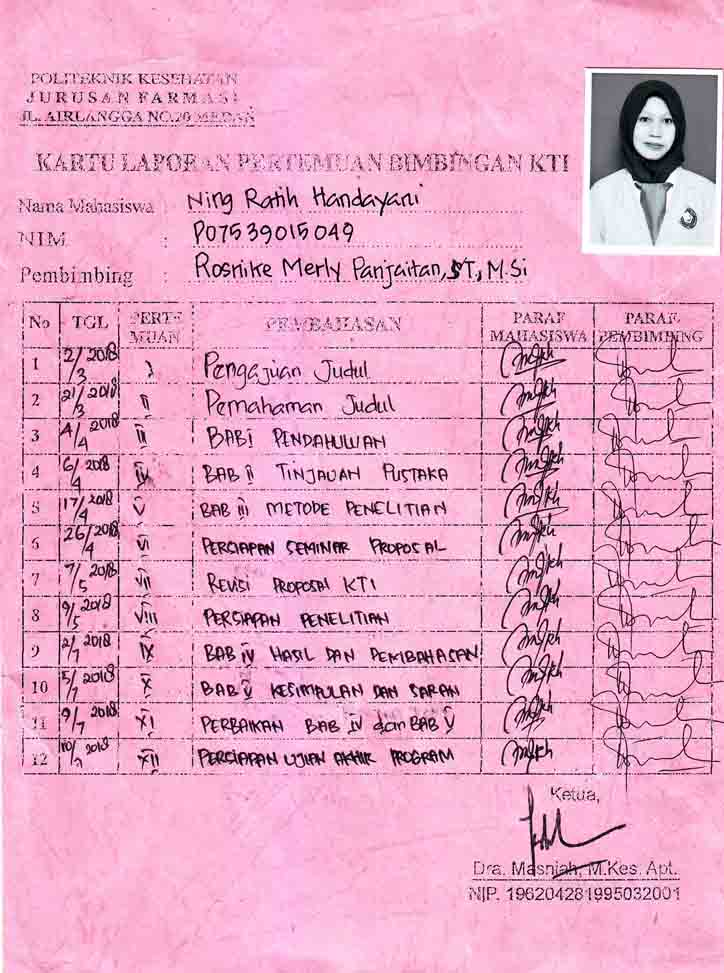 POLITEKNIK KESEHATAN
JURUSAN FARMASI
JL. AIRLANGGA NO.20 MEDAN
KARTU LAPORAN PERTEMUAN BIMBINGAN KTI
Nama Mahasiswa : Ning Ratih Handayani
NIM : P07539015049
Pembimbing : Rosnike Merly Panjaitan, ST., M.Si
No TGL PERTEMUAN PEMBAHASAN PARAF MAHASISWA PARAF PEMBIMBING
1 2/3 2018 I Pengajuan Judul
2 21/3 2018 II Pemahaman Judul
3 4/4 2018 III BAB I PENDAHULUAN
4 6/4 2018 IV BAB II TINJAUAN PUSTAKA
5 17/4 2018 V BAB III METODE PENELITIAN
6 26/4 2018 VI PERSIAPAN SEMINAR PROPOSAL
7 7/5 2018 VII REVISI PROPOSAL KTI
8 9/5 2018 VIII PERSIAPAN PENELITIAN
9 2/7 2018 IX BAB IV HASIL DAN PEMBAHASAN
10 5/7 2018 X BAB V KESIMPULAN DAN SARAN
11 9/7 2018 XI PERBAIKAN BAB IV dan BAB V
12 10/7 2018 XII PERSIAPAN UJIAN AKHIR PROGRAM
Ketua,
Dra. Masniah, M.Kes. Apt.
NIP. 196204281995032001